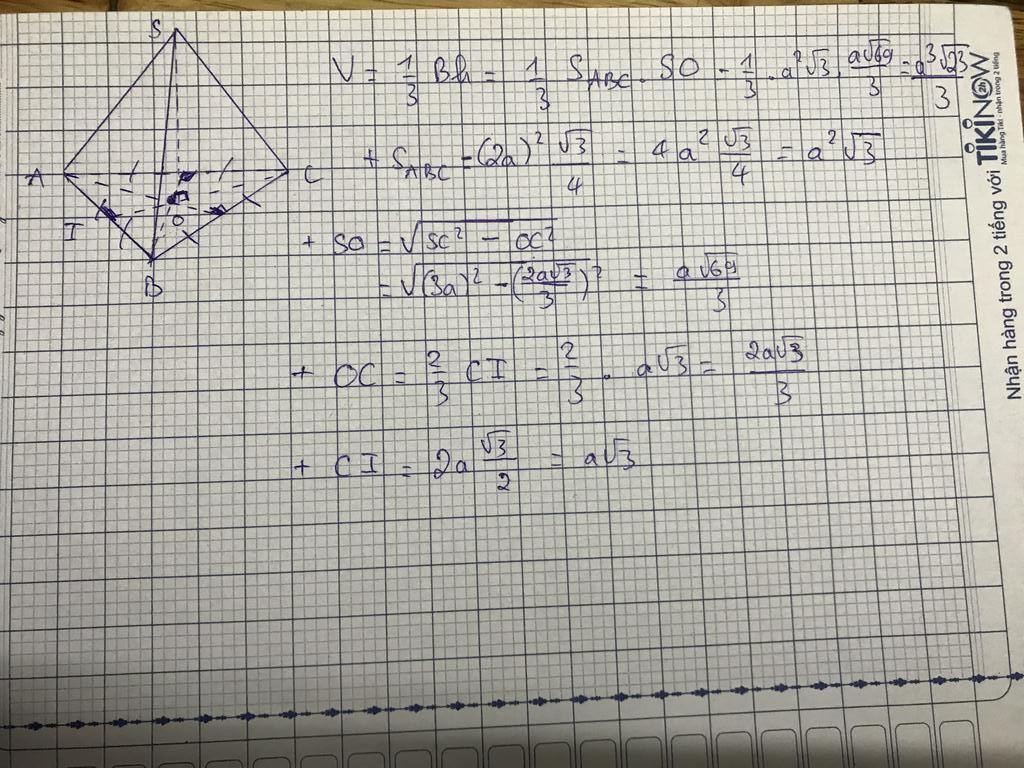 S
A
C
I
O
B
V = 1/3 Bh = 1/3 S_ABC . SO = 1/3 . a²√3 . a√69/3 = a³√23/3
+ S_ABC = (2a)² √3/4 = 4a² √3/4 = a²√3
+ SO = √(SC² - OC²)
= √((3a)² - (2a√3/3)²) = a√69/3
+ OC = 2/3 CI = 2/3 . a√3 = 2a√3/3
+ CI = 2a √3/2 = a√3
Nhận hàng trong 2 tiếng với TIKINOW 2h
Mua hàng Tiki - nhận trong 2 tiếng